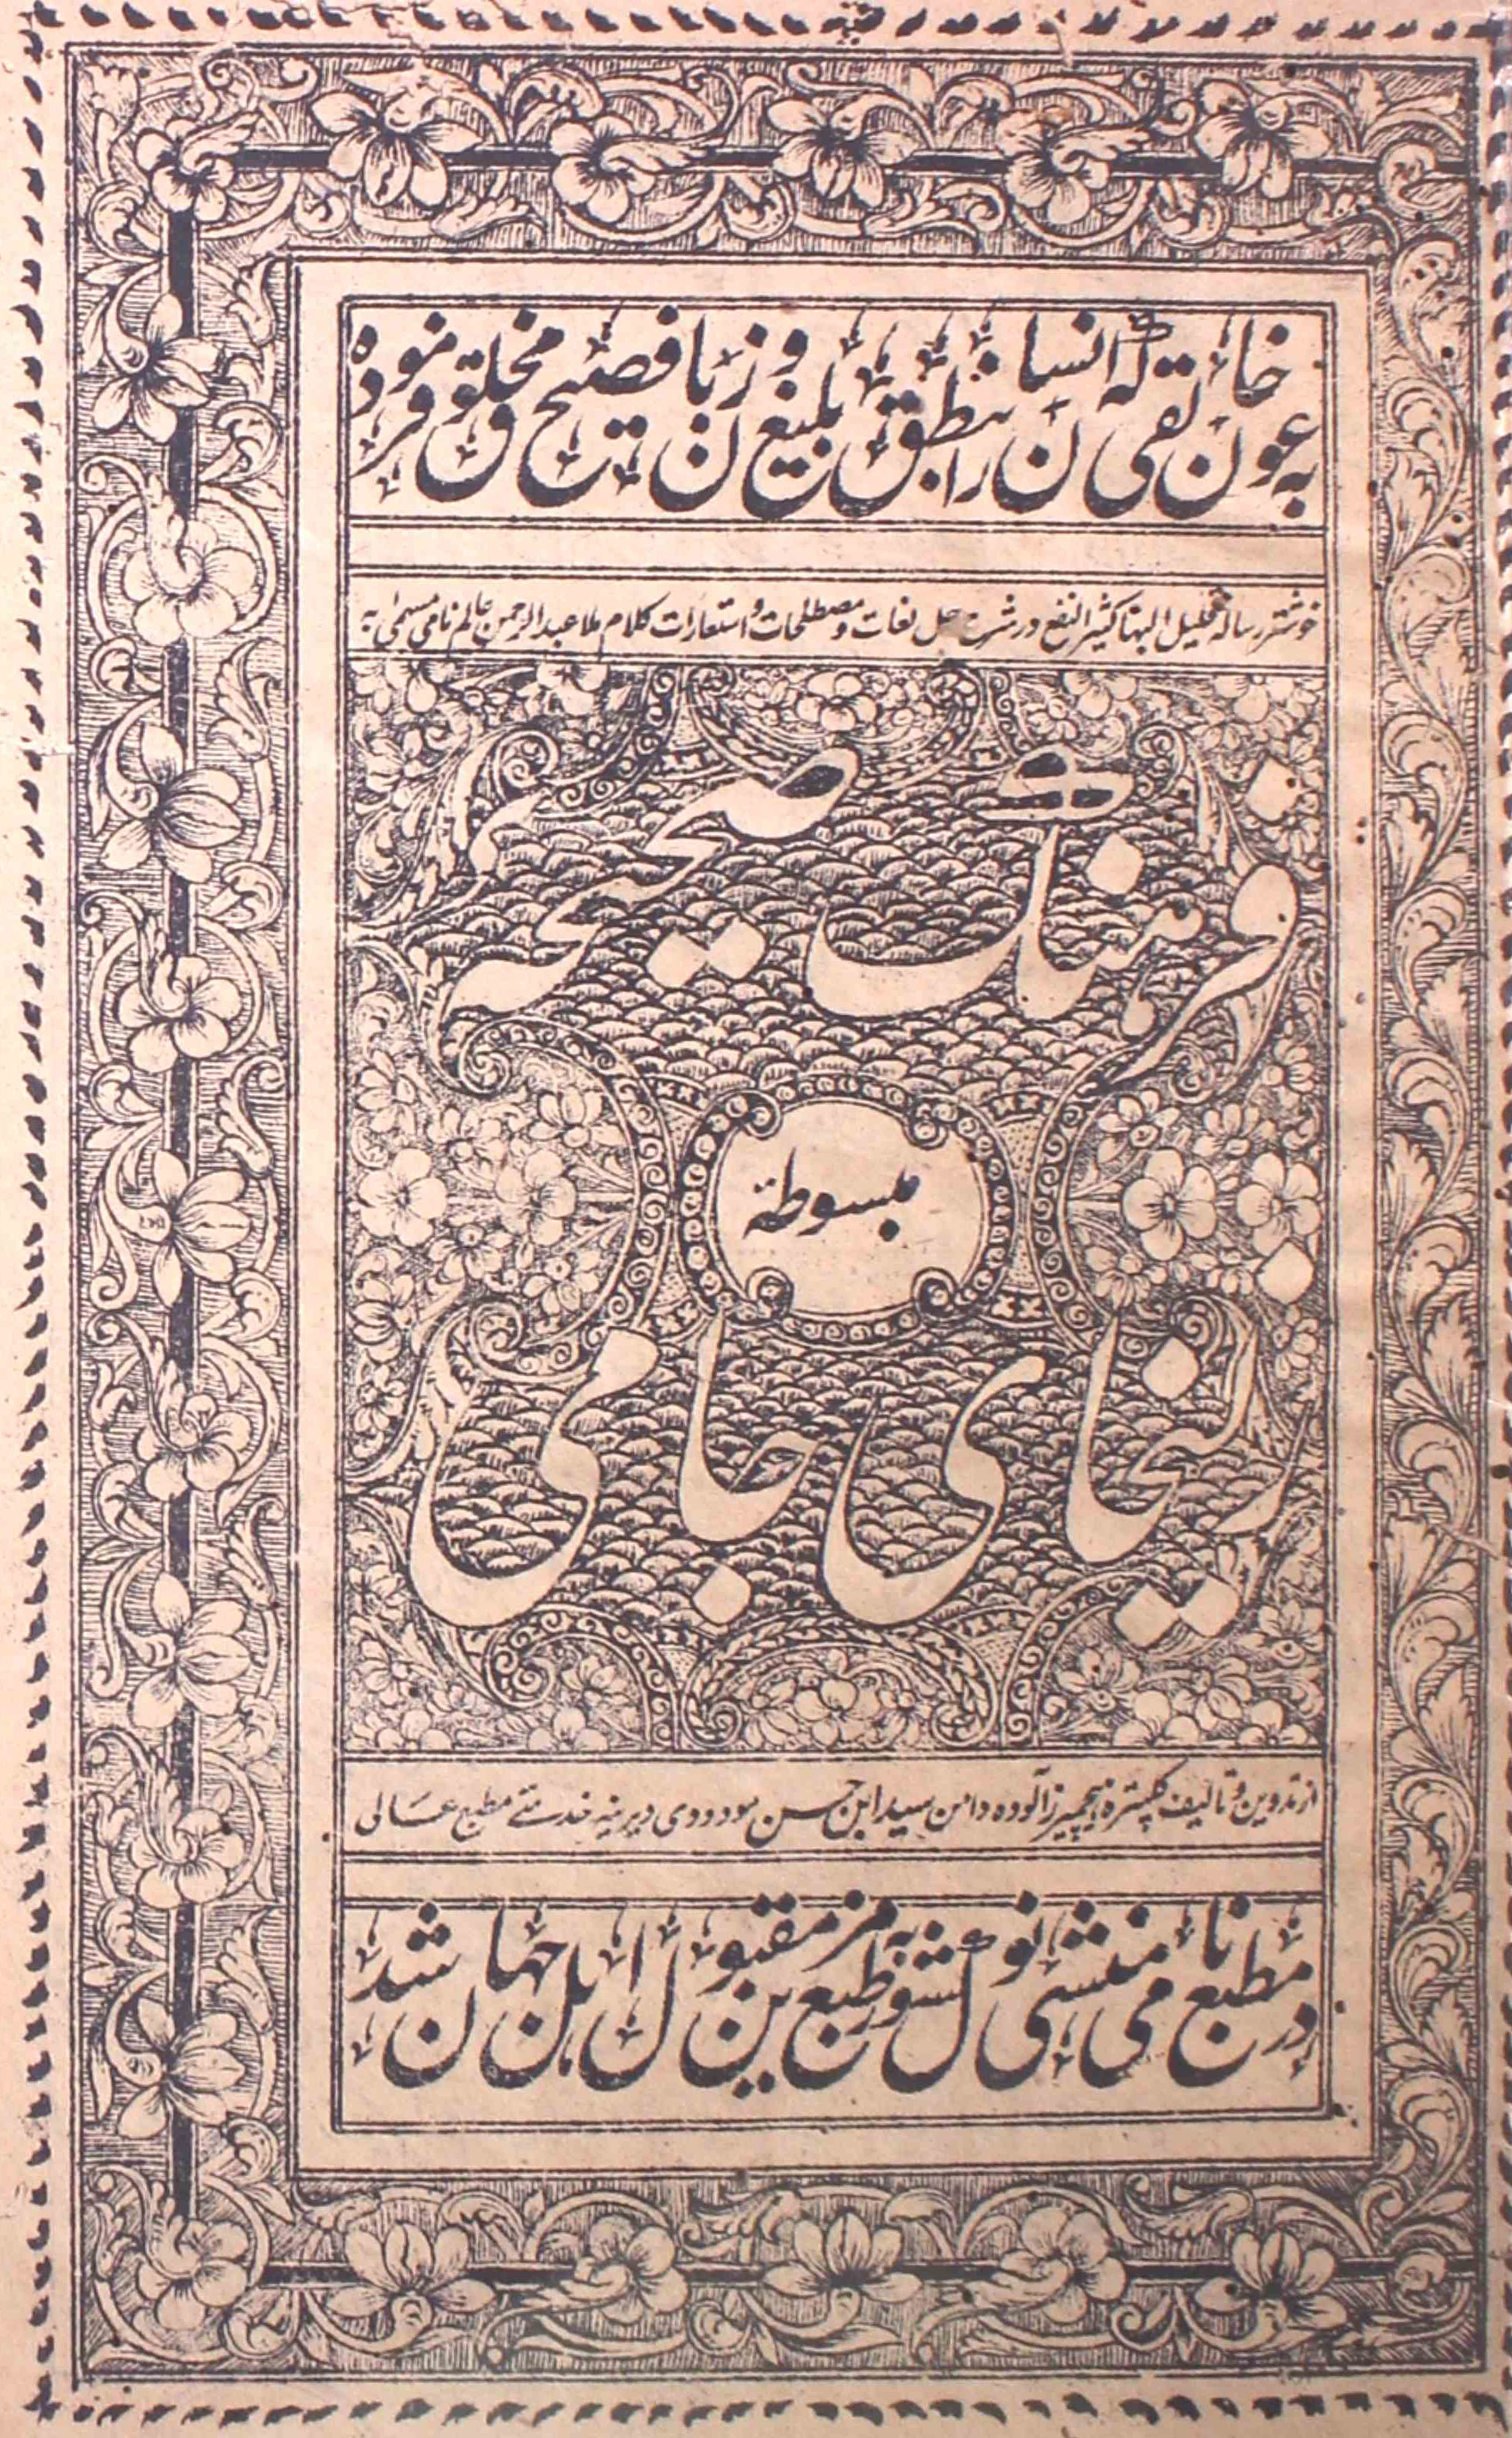 به عون خالقی که انسان را بنطق بلیغ و زبان فصیح مخلوق فرموده
خوشتر رساله قلیل البها کثیر النفع در شرح حل لغات و مصطلحات و استعارات کلام ملا عبدالرحمن عالم نامی مسمیٰ به
فرهنگ صحیحه
مبسوطة
زلیخای جامی
از تدوین و تالیف کمتره هیچمیرز آلوده دامن سید ابن حسن مودودی دیرینه خدمتی مطبع عالی
در مطبع نامی منشی نولکشور بطبع مزین مقبول اهل جهان شد